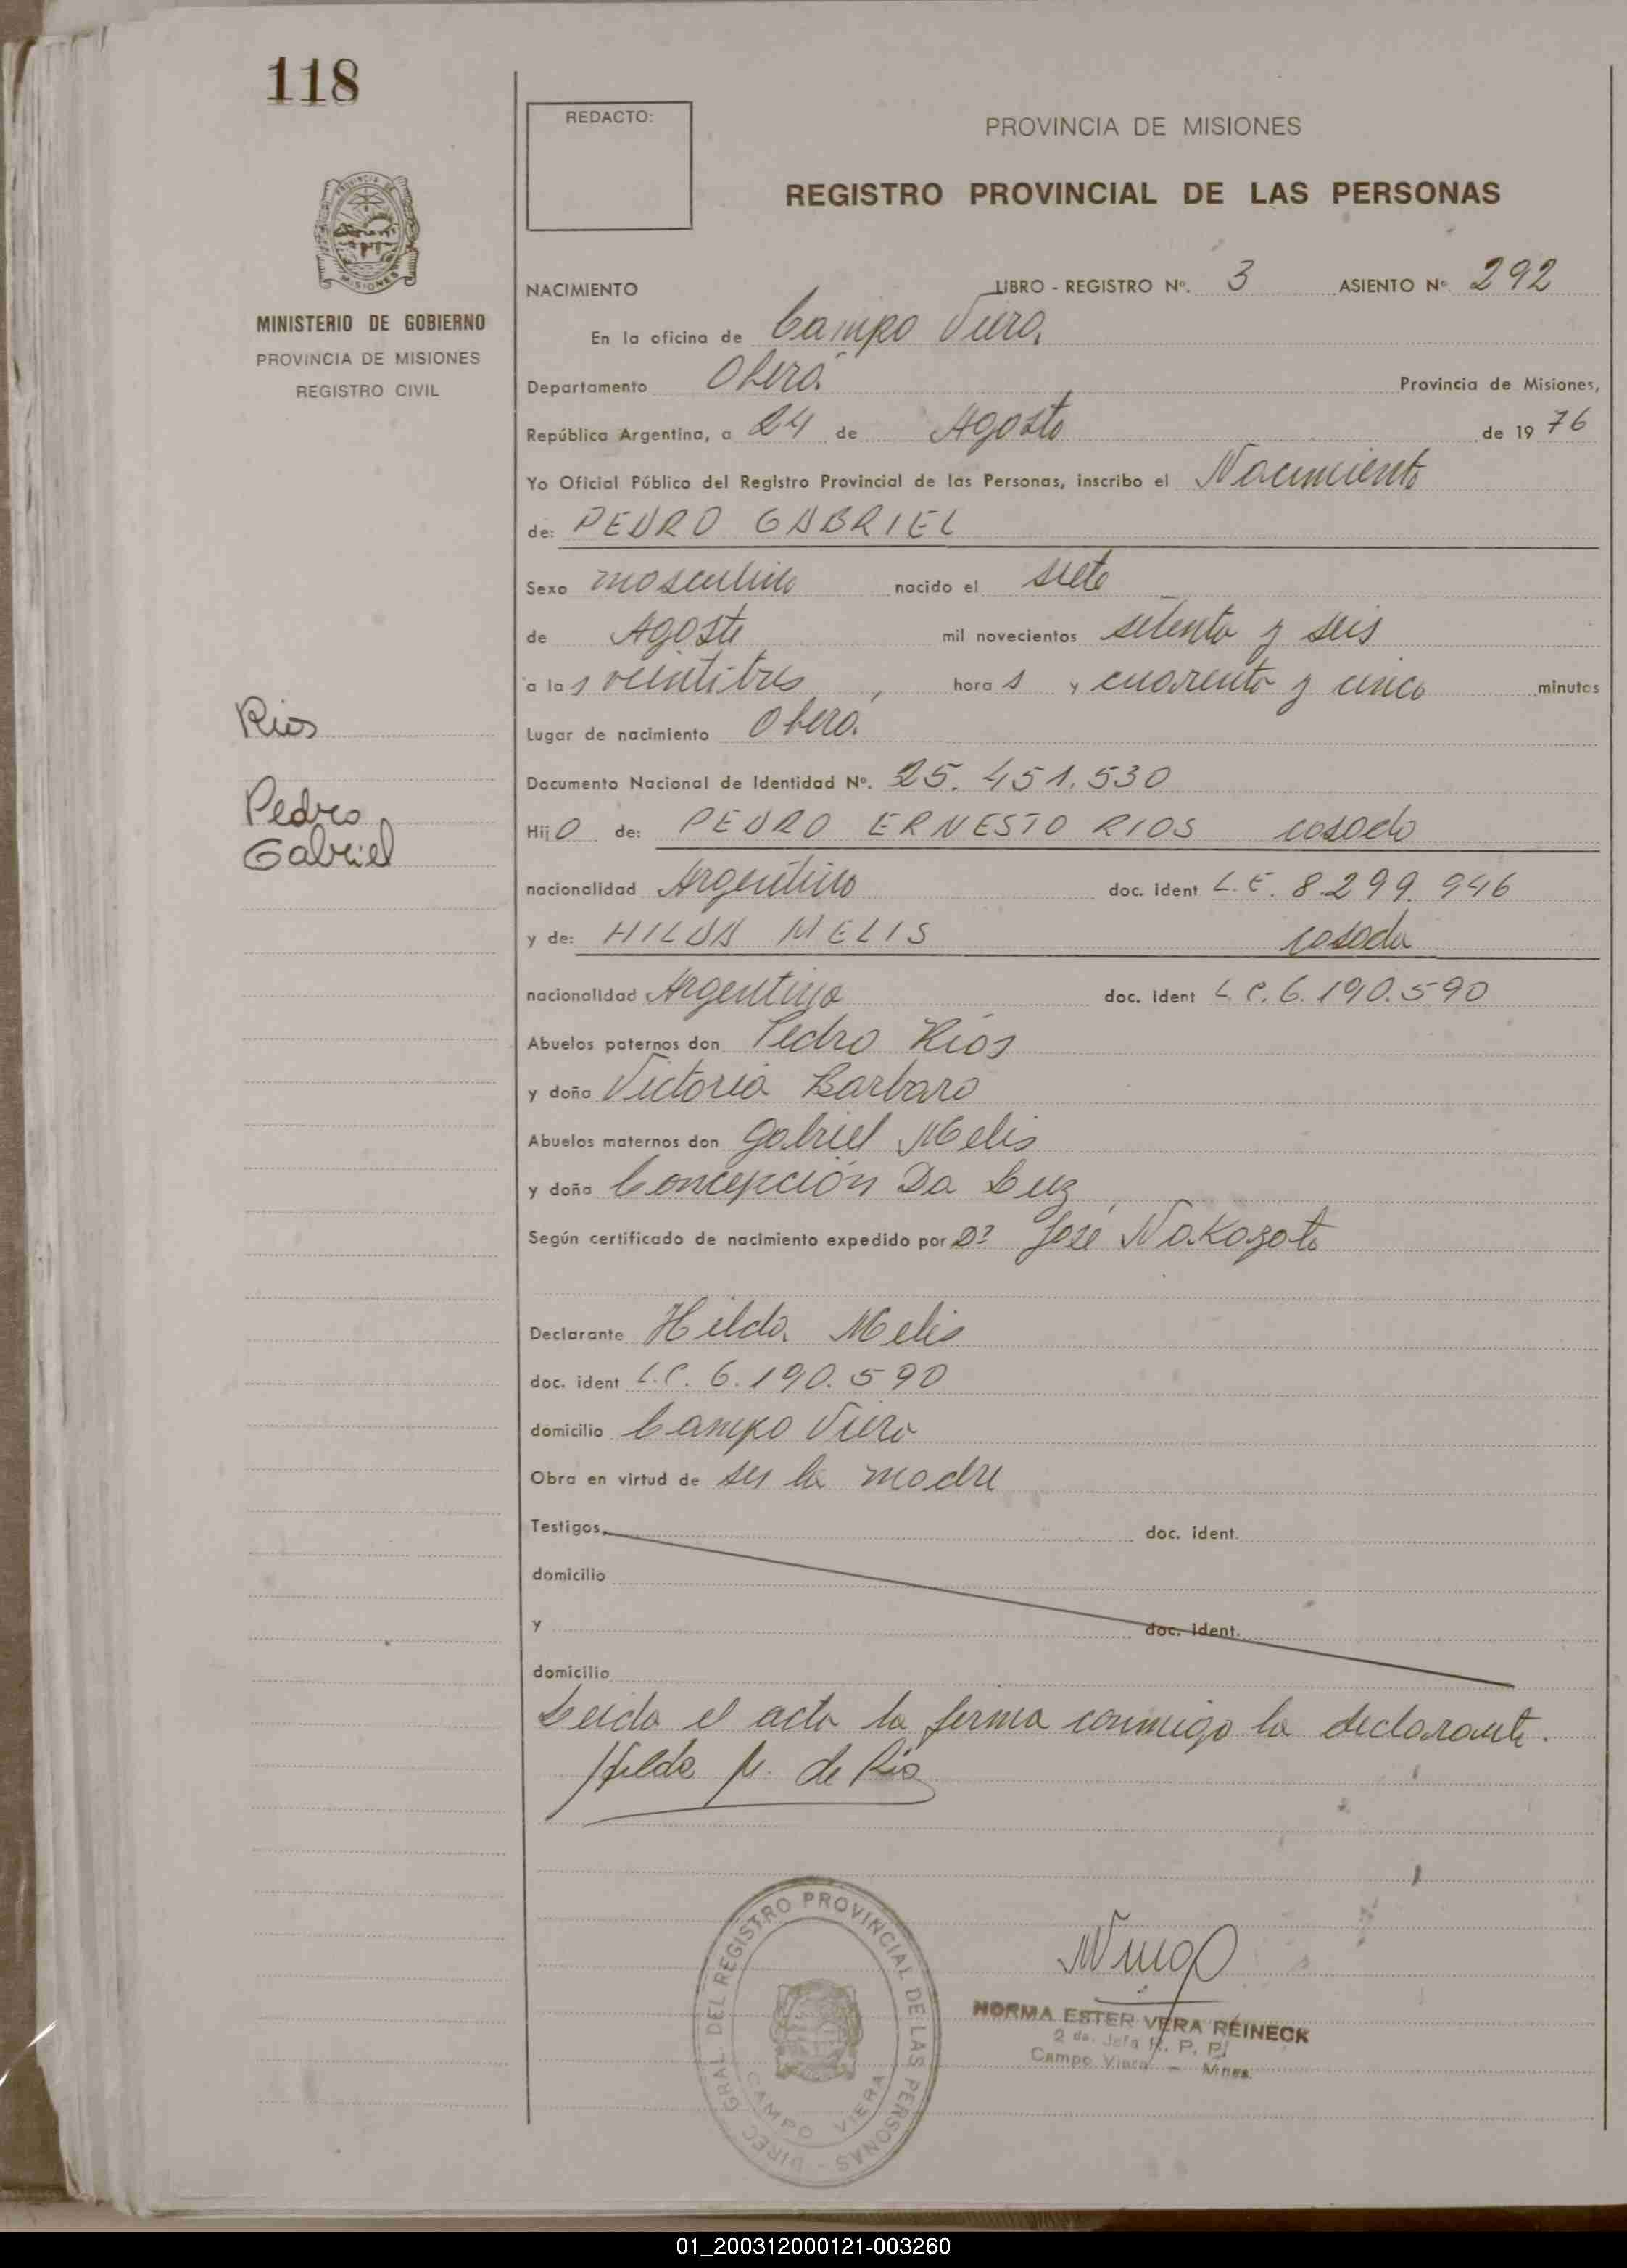 118
REDACTO:
PROVINCIA DE MISIONES
REGISTRO PROVINCIAL DE LAS PERSONAS
MINISTERIO DE GOBIERNO
PROVINCIA DE MISIONES
REGISTRO CIVIL
NACIMIENTO LIBRO - REGISTRO Nº. 3 ASIENTO Nº 292
En la oficina de Campo Viera.
Departamento Oberá Provincia de Misiones,
República Argentina, a 24 de Agosto de 1976
Yo Oficial Público del Registro Provincial de las Personas, inscribo el Nacimiento
de: PEDRO GABRIEL
Sexo masculino nacido el siete
de Agosto mil novecientos setenta y seis
a las veintitres, horas y cuarenta y cinco minutos
Lugar de nacimiento Oberá.
Documento Nacional de Identidad Nº. 25.451.530
Rios
Pedro
Gabriel
Hijo de: PEDRO ERNESTO RIOS casado
nacionalidad Argentino doc. ident L.E. 8.299.946
y de: HILDA MELIS casada
nacionalidad Argentina doc. ident L.C. 6.190.590
Abuelos paternos don Pedro Rios
y doña Victoria Barbaro
Abuelos maternos don Gabriel Melis
y doña Concepción Da Luz
Según certificado de nacimiento expedido por Dr José Nakozato
Declarante Hilda Melis
doc. ident L.C. 6.190.590
domicilio Campo Viera
Obra en virtud de ser la madre
Testigos doc. ident.
domicilio
y doc. ident.
domicilio
Leida el acta la firma conmigo la declarante.
Hilda M. de Rios
DIREC. GRAL. DEL REGISTRO PROVINCIAL DE LAS PERSONAS -
CAMPO VIERA
NORMA ESTER VERA REINECK
2 da. Jefa R. P. P.
Campo Viera - Mnes.
01_200312000121-003260